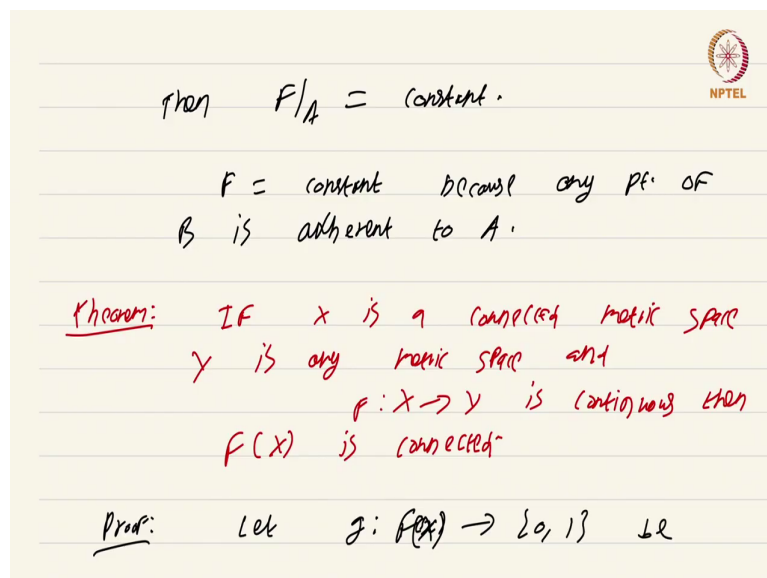 NPTEL
Then F/A = constant.
F = constant because any pt. of
B is adherent to A.
Theorem: If X is a connected metric space
Y is any metric space and
F: X → Y is continuous then
F(X) is connected.
Proof: Let g: F(X) → {0, 1} be